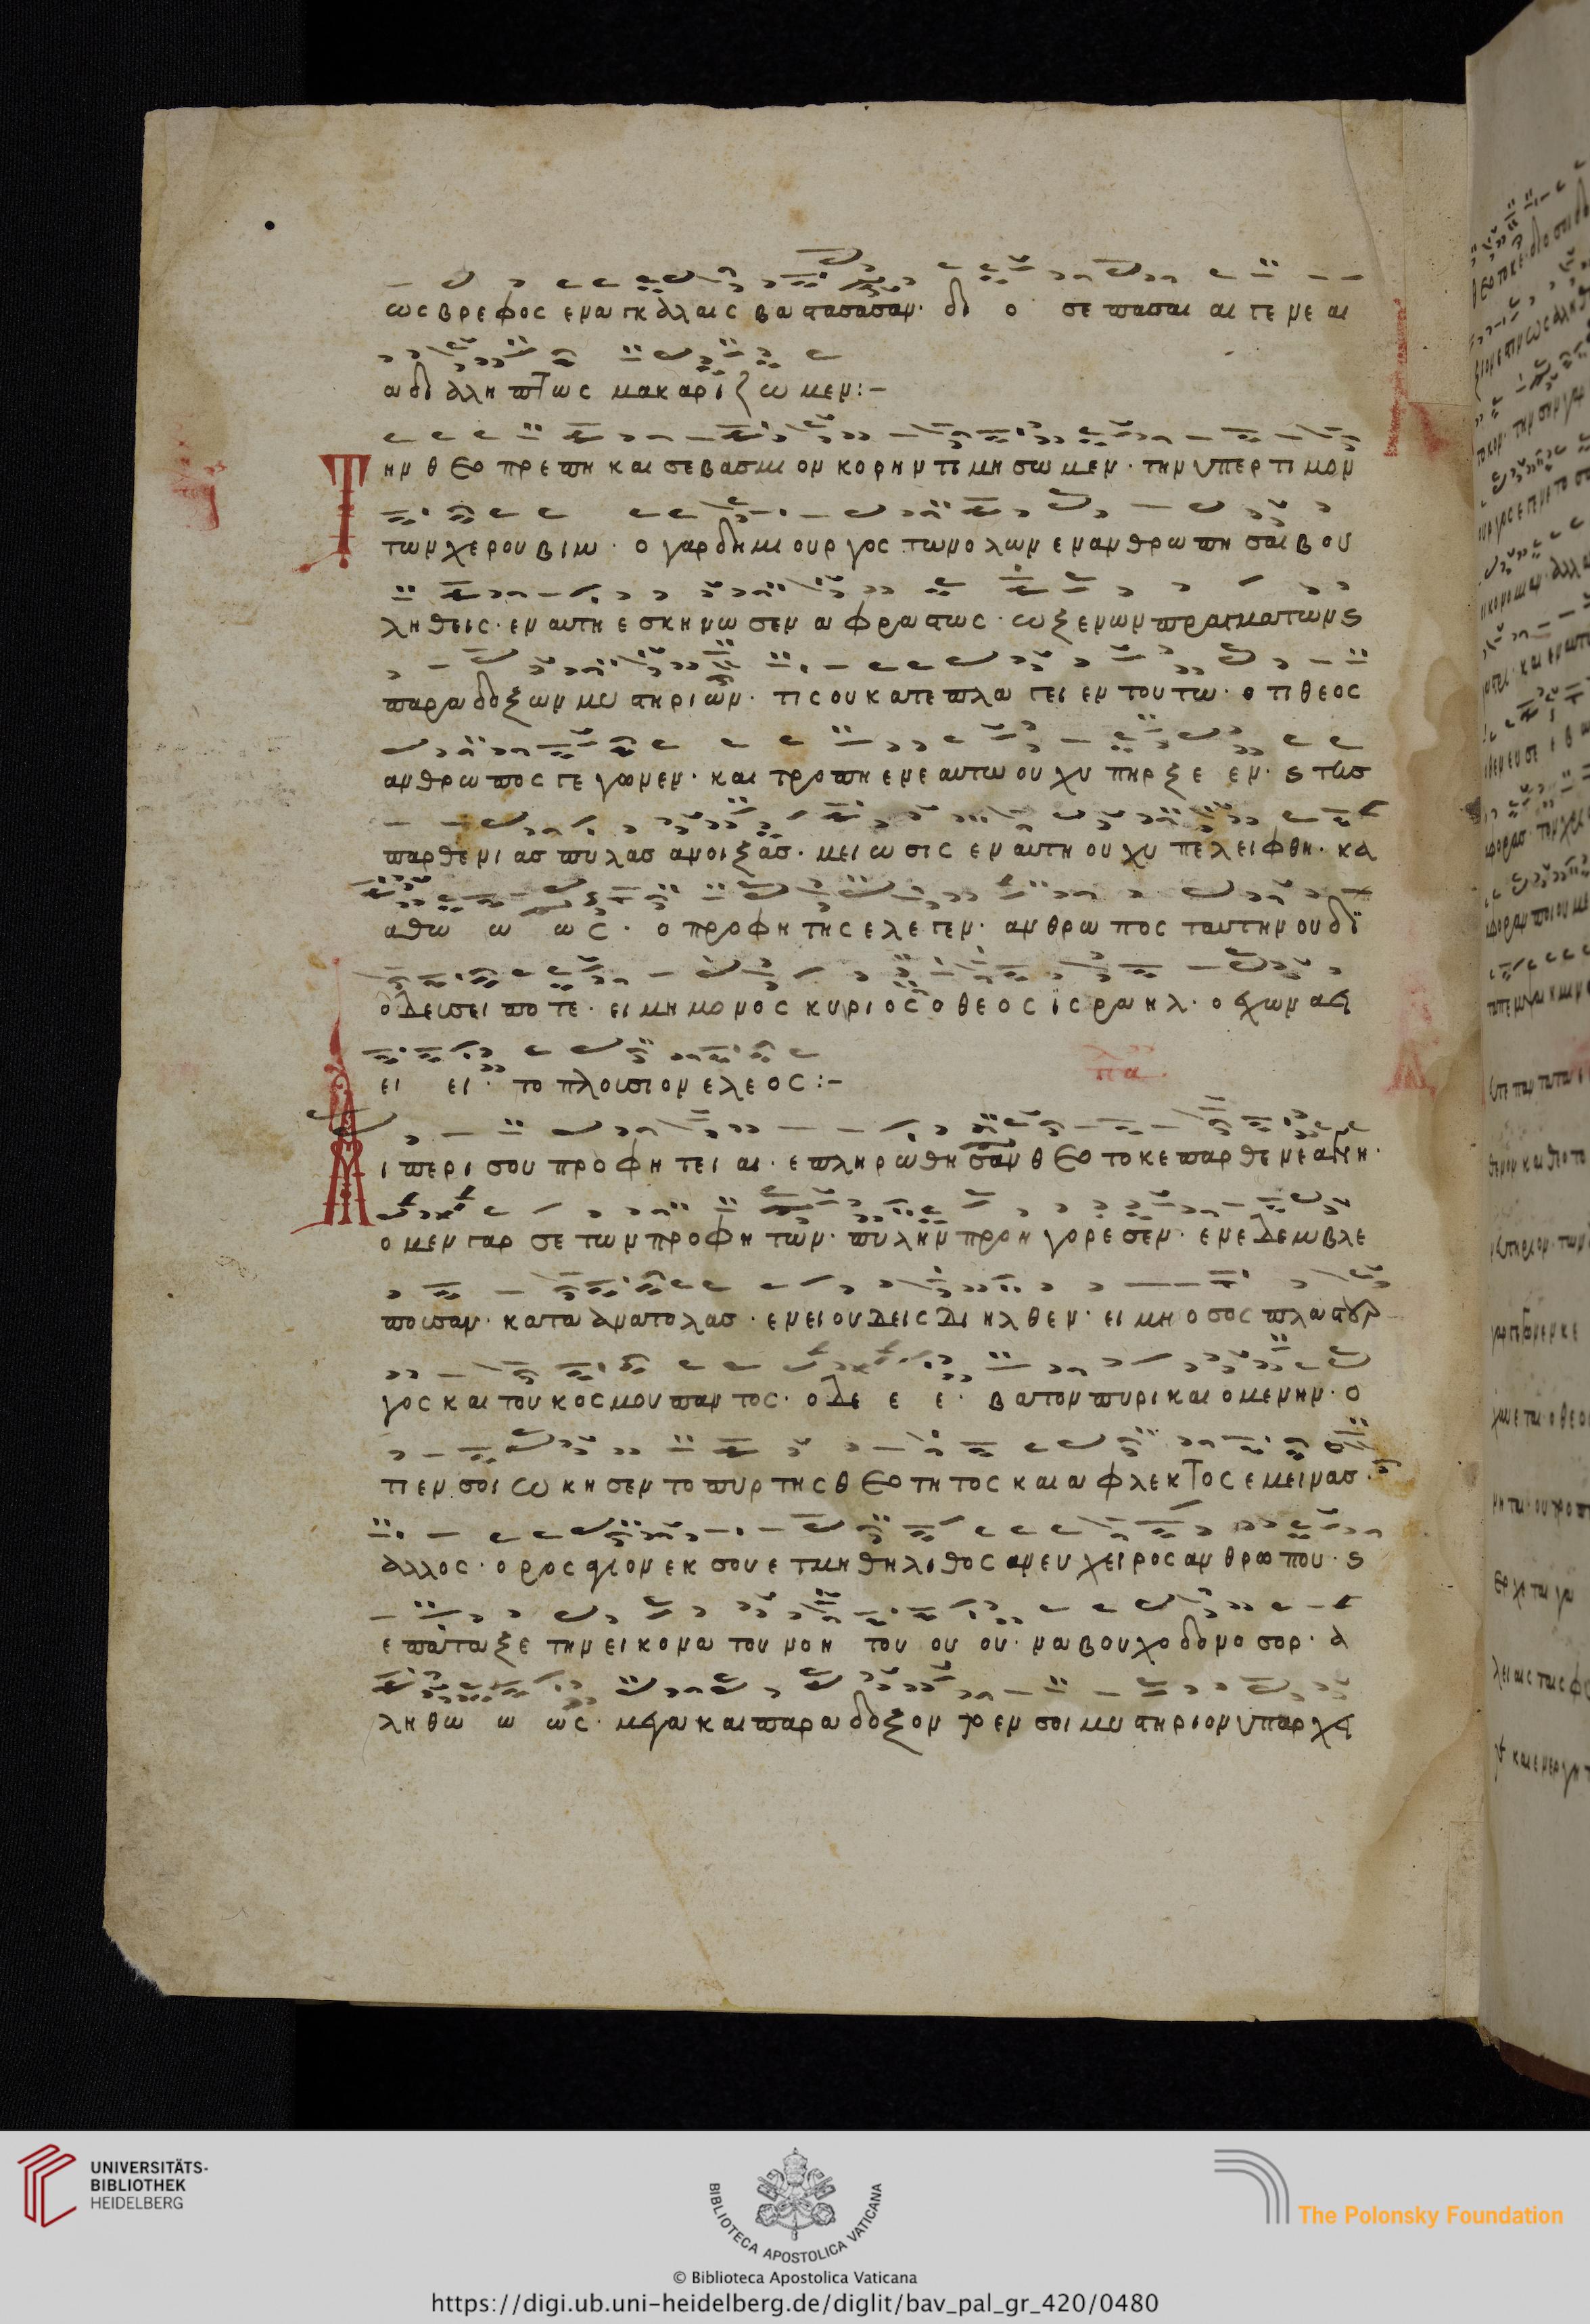 ως βρεφος εν αγκαλαις βαστασασαν· διο σε πασαι αι γενεαι
αδιαληπτως μακαριζωμεν:-
Την θεοπρεπη και σεβασμιον κορην τιμησωμεν· την υπερτιμον
των χερουβιμ· ο γαρ δημιουργος των ολων ενανθρωπησαι βου
ληθεις· εν αυτη εσκηνωσεν αφραστως· ω ξενων πραγματων ϛ
παραδοξων μυστηριων· τις ου καταπλαγει εν τουτω· οτι θεος
ανθρωπος γεγωνεν· και τροπη εν εαυτω ουχ υπηρξε εν· ϛ τασ
παρθενιασ πυλασ ανοιξασ· μειωσις εν αυτη ουχ υπελειφθη· κα
αθω ω ως· ο προφητης ελεγεν· ανθρωπος ταυτην ου δι
οδευσει ποτε· ει μη μονος κυριος ο θεος ισραηλ· ο εχων
ει ει· το πλουσιον ελεος:-
πα·
Αι περι σου προφητειαι· επληρωθησαν θεοτοκε παρθενε αγνη·
ο μεν γαρ σε των προφητων· πυλην προηγορεσεν· εν εδεμ βλε
πουσαν· κατα ανατολασ· εν ει ουδεις διηλθεν· ει μη ο σος πλαστουρ
γος και του κοσμου παντος· ο δε ε ε· βατον πυρι καιομενην· ο
τι εν σοι ωκησεν το πυρ της θεοτητος και αφλεκτος εμεινασ·
αλλος· ορος αγιον εκ σου ετμηθη λιθος ανευ χειρος ανθρωπου· ϛ
επαταξε την εικονα του νοη του ου ου· ναβουχοδονοσορ· α
ληθω ω ως· μεγα και παραδοξον το εν σοι μυστηριον υπαρχει
UNIVERSITÄTS-
BIBLIOTHEK
HEIDELBERG
BIBLIOTECA APOSTOLICA VATICANA
The Polonsky Foundation
© Biblioteca Apostolica Vaticana
https://digi.ub.uni-heidelberg.de/diglit/bav_pal_gr_420/0480